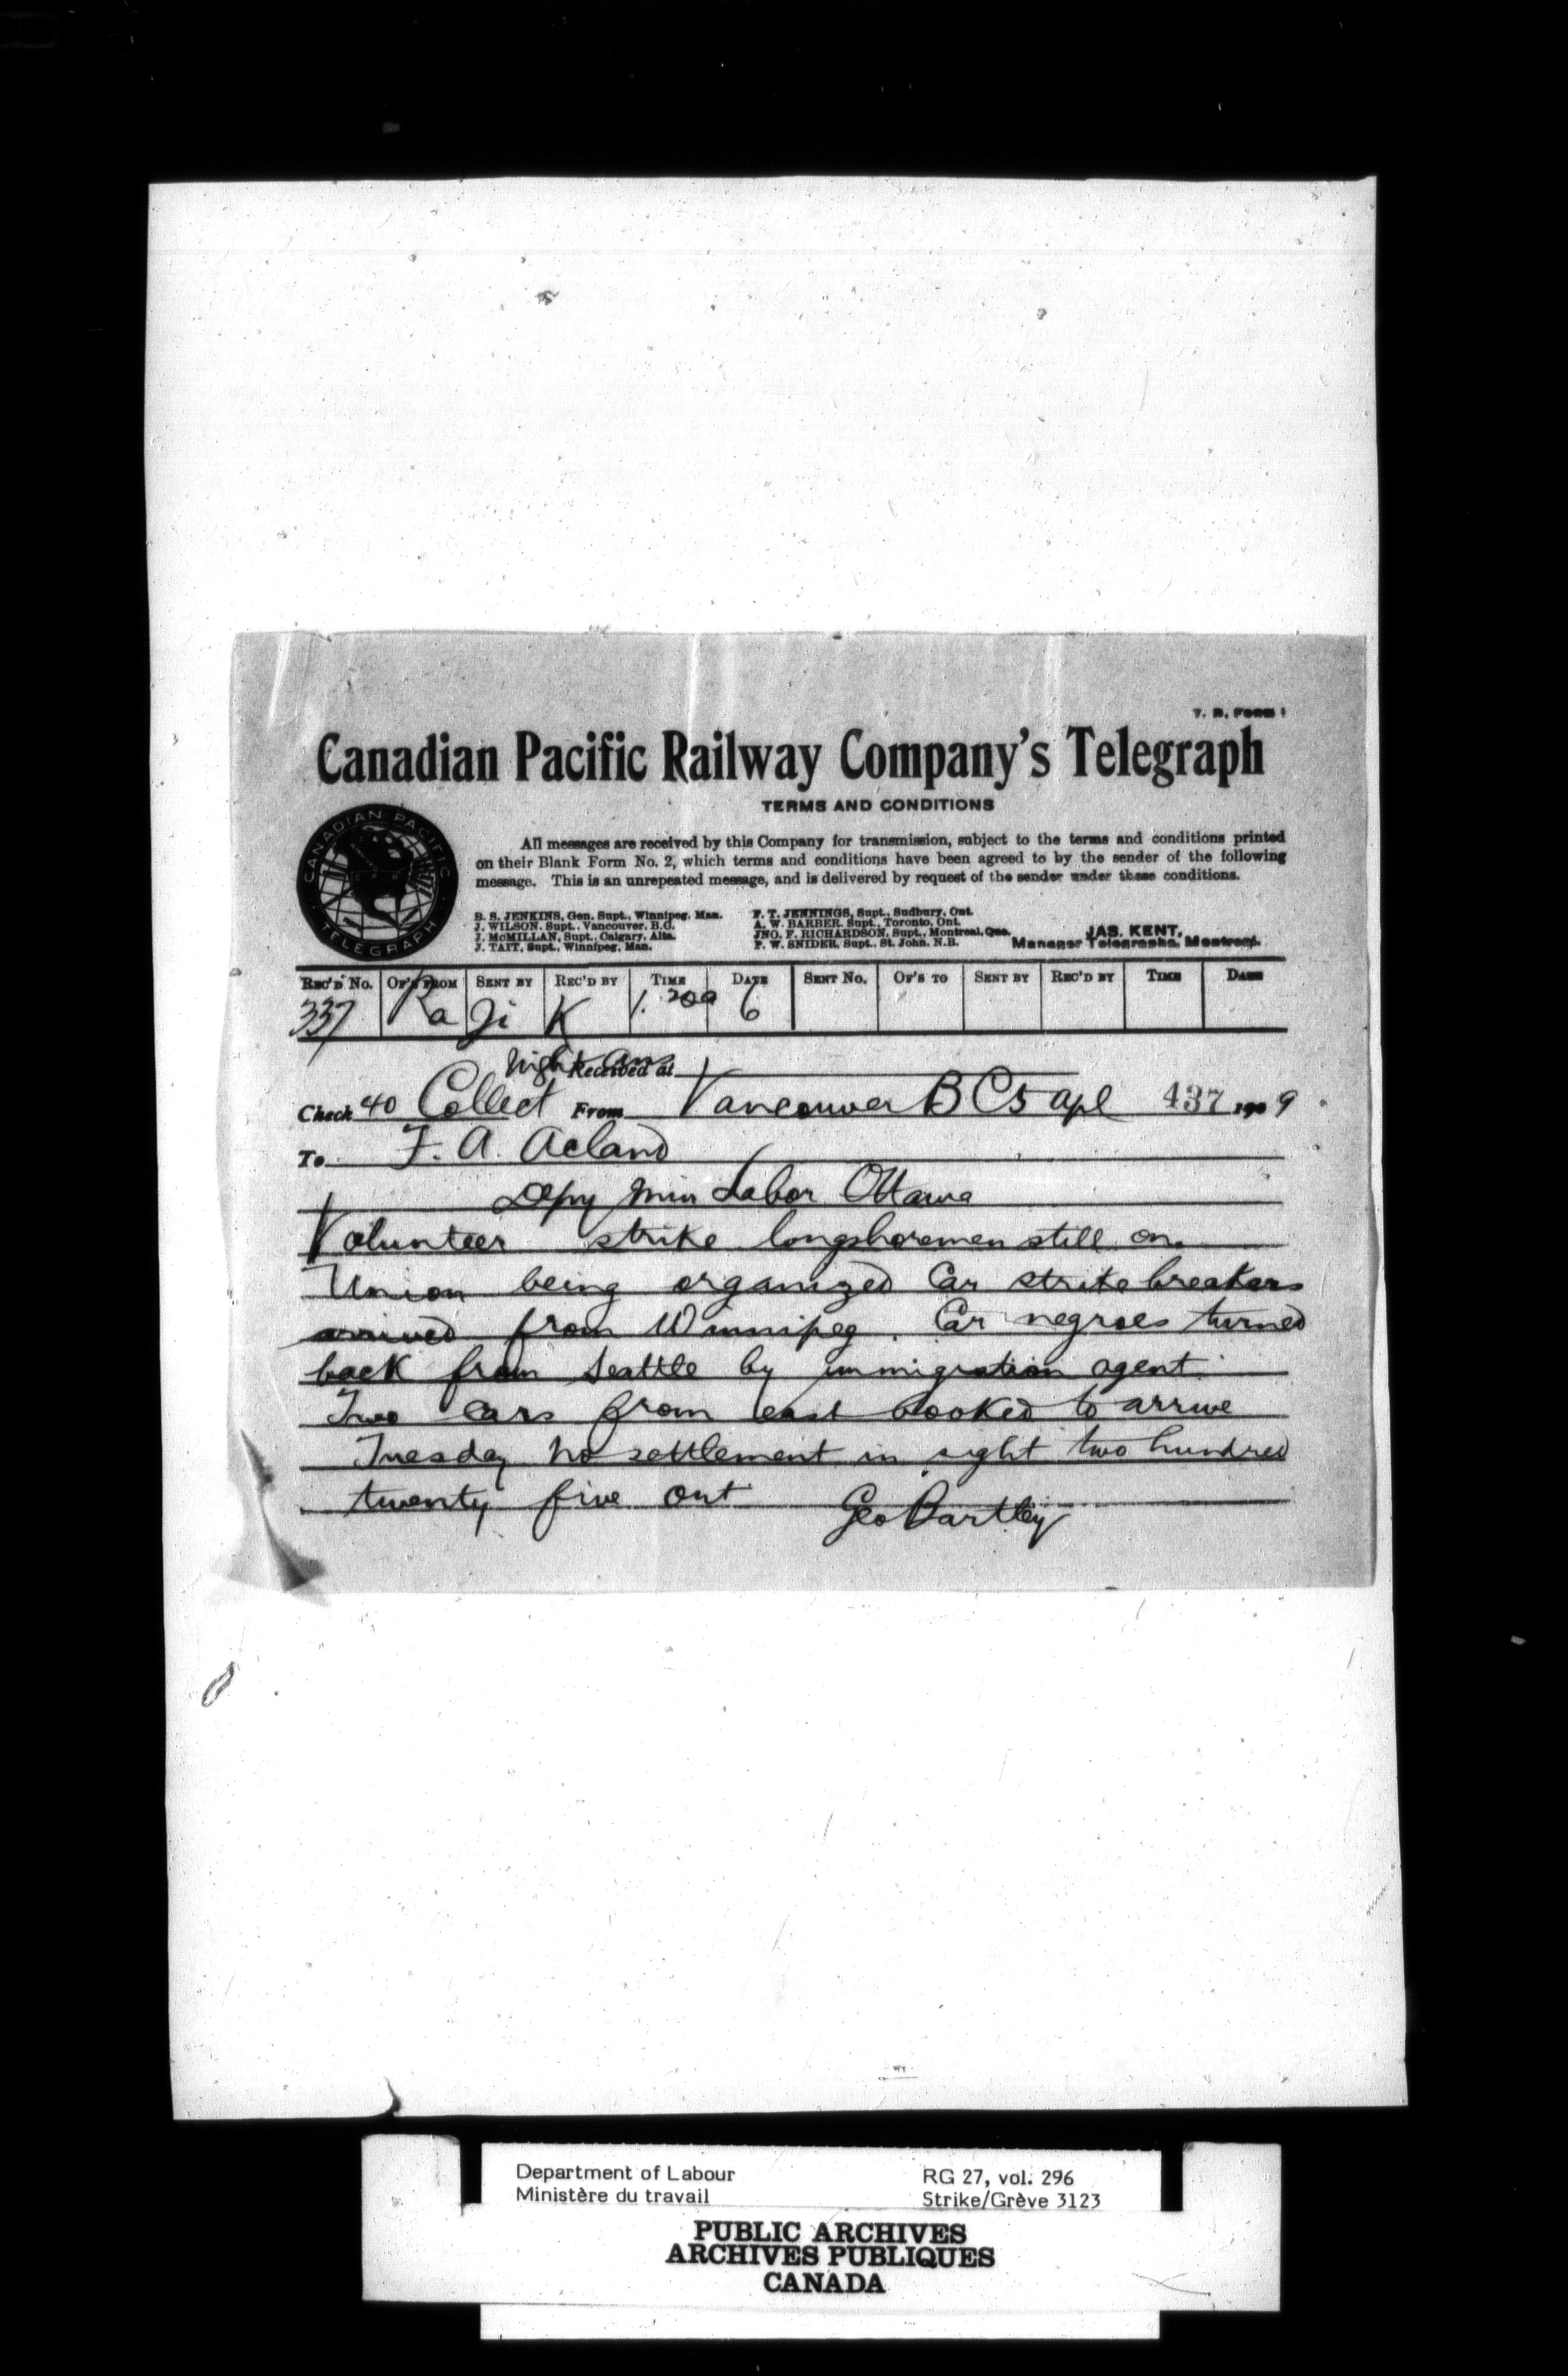 T. D. FORM 1
Canadian Pacific Railway Company's Telegraph
TERMS AND CONDITIONS
CANADIAN PACIFIC
TELEGRAPH
All messages are received by this Company for transmission, subject to the terms and conditions printed
on their Blank Form No. 2, which terms and conditions have been agreed to by the sender of the following
message. This is an unrepeated message, and is delivered by request of the sender under these conditions.
B. S. JENKINS, Gen. Supt., Winnipeg, Man.
J. WILSON, Supt., Vancouver, B.C.
J. McMILLAN, Supt., Calgary, Alta.
J. TAIT, Supt., Winnipeg, Man.
F. T. JENNINGS, Supt., Sudbury, Ont.
A. W. BARBER, Supt., Toronto, Ont.
JNO. F. RICHARDSON, Supt., Montreal, Que.
F. W. SNIDER, Supt., St. John, N.B.
JAS. KENT,
Manager Telegraphs, Montreal.
REC'D No. OF'S FROM SENT BY REC'D BY TIME DATE SENT No. OF'S TO SENT BY REC'D BY TIME DATE
337 Ra Ji K 1.20a 6
Night Ans
Received at
Check 40 Collect From Vancouver B C 5 apl 437 190 9
To F. A. Acland
Depy Min Labor Ottawa
Volunteer strike longshoremen still on.
Union being organized Car strikebreakers
arrived from Winnipeg. Car negroes turned
back from Seattle by immigration agent.
Two cars from east booked to arrive
Tuesday no settlement in sight two hundred
twenty five out
Geo Bartley
Department of Labour
Ministère du travail
RG 27, vol. 296
Strike/Grève 3123
PUBLIC ARCHIVES
ARCHIVES PUBLIQUES
CANADA